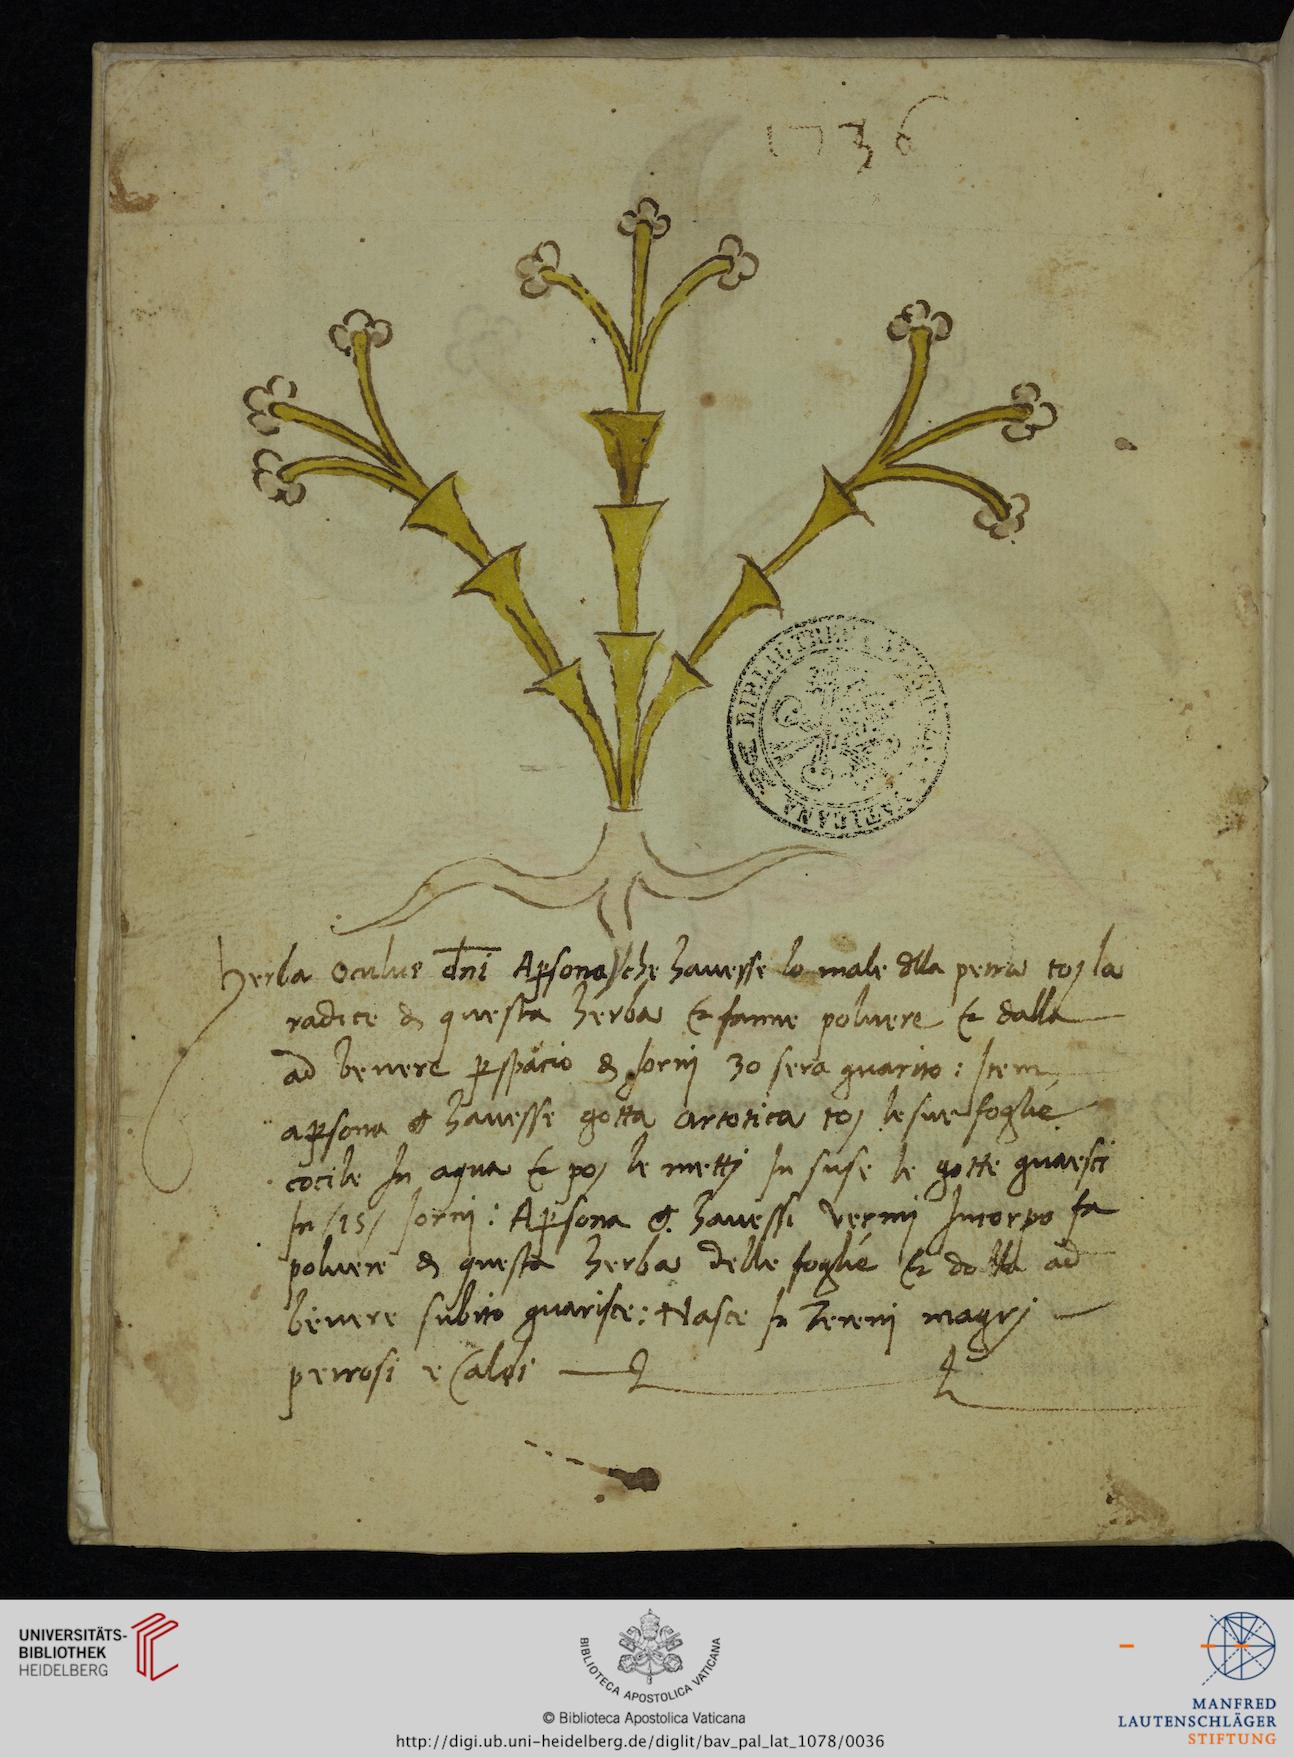 1736
Herba oculus dnĩ Apsona che havesse lo male dlla petra toj la
radice di questa herba & fanne polvere & dalla
ad bevere p spacio di Jorni 30 sera guarito: Item
apsona che havesse gotta artetica toj le sue foglie
cocile In aqua & poj le mettj In suse le gotte guaresci
In /15/ Jorni: Apsona che havessi vermi Incorpo fa
polvere di questa herba delle foglie & dalla ad
bevere subito guarisce: Nasce In Tereni magrj
petrosi e Caldi
UNIVERSITÄTS-
BIBLIOTHEK
HEIDELBERG
BIBLIOTECA APOSTOLICA VATICANA
© Biblioteca Apostolica Vaticana
http://digi.ub.uni-heidelberg.de/diglit/bav_pal_lat_1078/0036
MANFRED
LAUTENSCHLÄGER
STIFTUNG